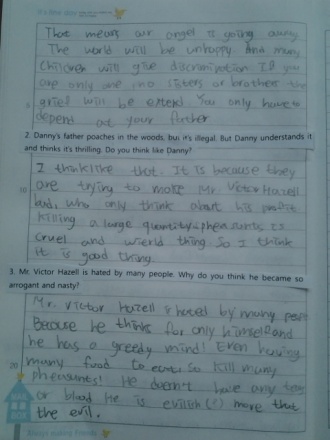 That means our angel is going away.
The world will be unhappy. And many
children will give discrimination. If you
are only one in a sisters or brothers the
grief will be extend. You only have to
5
depend at your further
2. Danny's father poaches in the woods, but it's illegal. But Danny understands it
and thinks it's thrilling. Do you think like Danny?
I think like that. It is because they
10
are trying to make Mr. Victor Hazell
bad, who only think about his profit
killing a large quantity pheasants is
cruel and wierld thing. So I think
it is good thing.
3. Mr. Victor Hazell is hated by many people. Why do you think he became so
arrogant and nasty?
Mr. Victor Hazell is hated by many people
Because he thinks for only himself and
he has a greedy mind! Even having
20
many food to eat, so kill many
pheasants! He doesn't have any
or blood He is evilish (?) more that
the evil.
MAIL
BOX